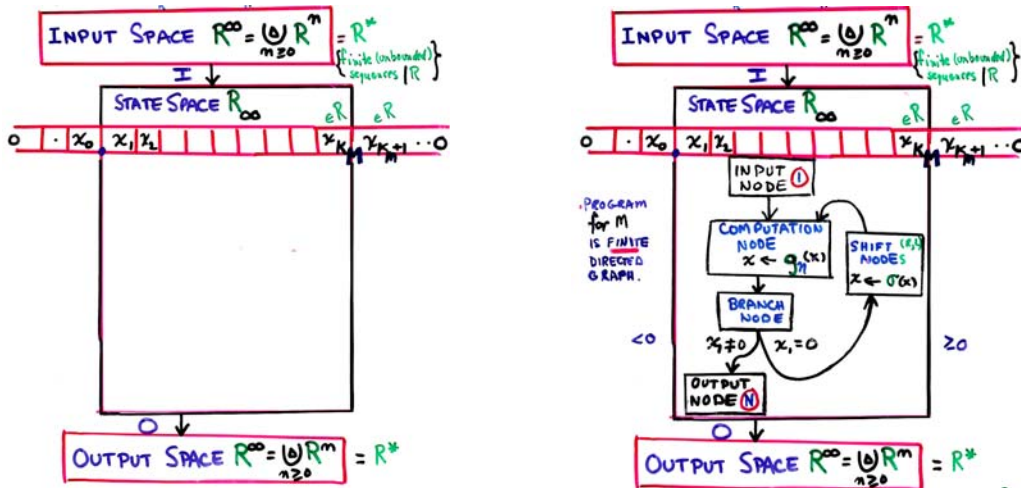 INPUT SPACE R^∞ = ⨃_{n≥0} R^n = R*
{finite (unbounded) sequences / R}
I
STATE SPACE R_∞
∈R ∈R
0 · x_0 x_1 x_2 x_{K_M} x_{K_M+1} ··0
O
OUTPUT SPACE R^∞ = ⨃_{n≥0} R^n = R*
INPUT SPACE R^∞ = ⨃_{n≥0} R^n = R*
{finite (unbounded) sequences / R}
I
STATE SPACE R_∞
∈R ∈R
0 · x_0 x_1 x_2 x_{K_M} x_{K_M+1} ··0
INPUT
NODE 1
.PROGRAM
for M
IS FINITE
DIRECTED
GRAPH.
COMPUTATION
NODE
x ← g_n(x)
SHIFT
NODES
x ← σ(x)
BRANCH
NODE
<0
x_1≠0 x_1=0
≥0
OUTPUT
NODE N
O
OUTPUT SPACE R^∞ = ⨃_{n≥0} R^n = R*